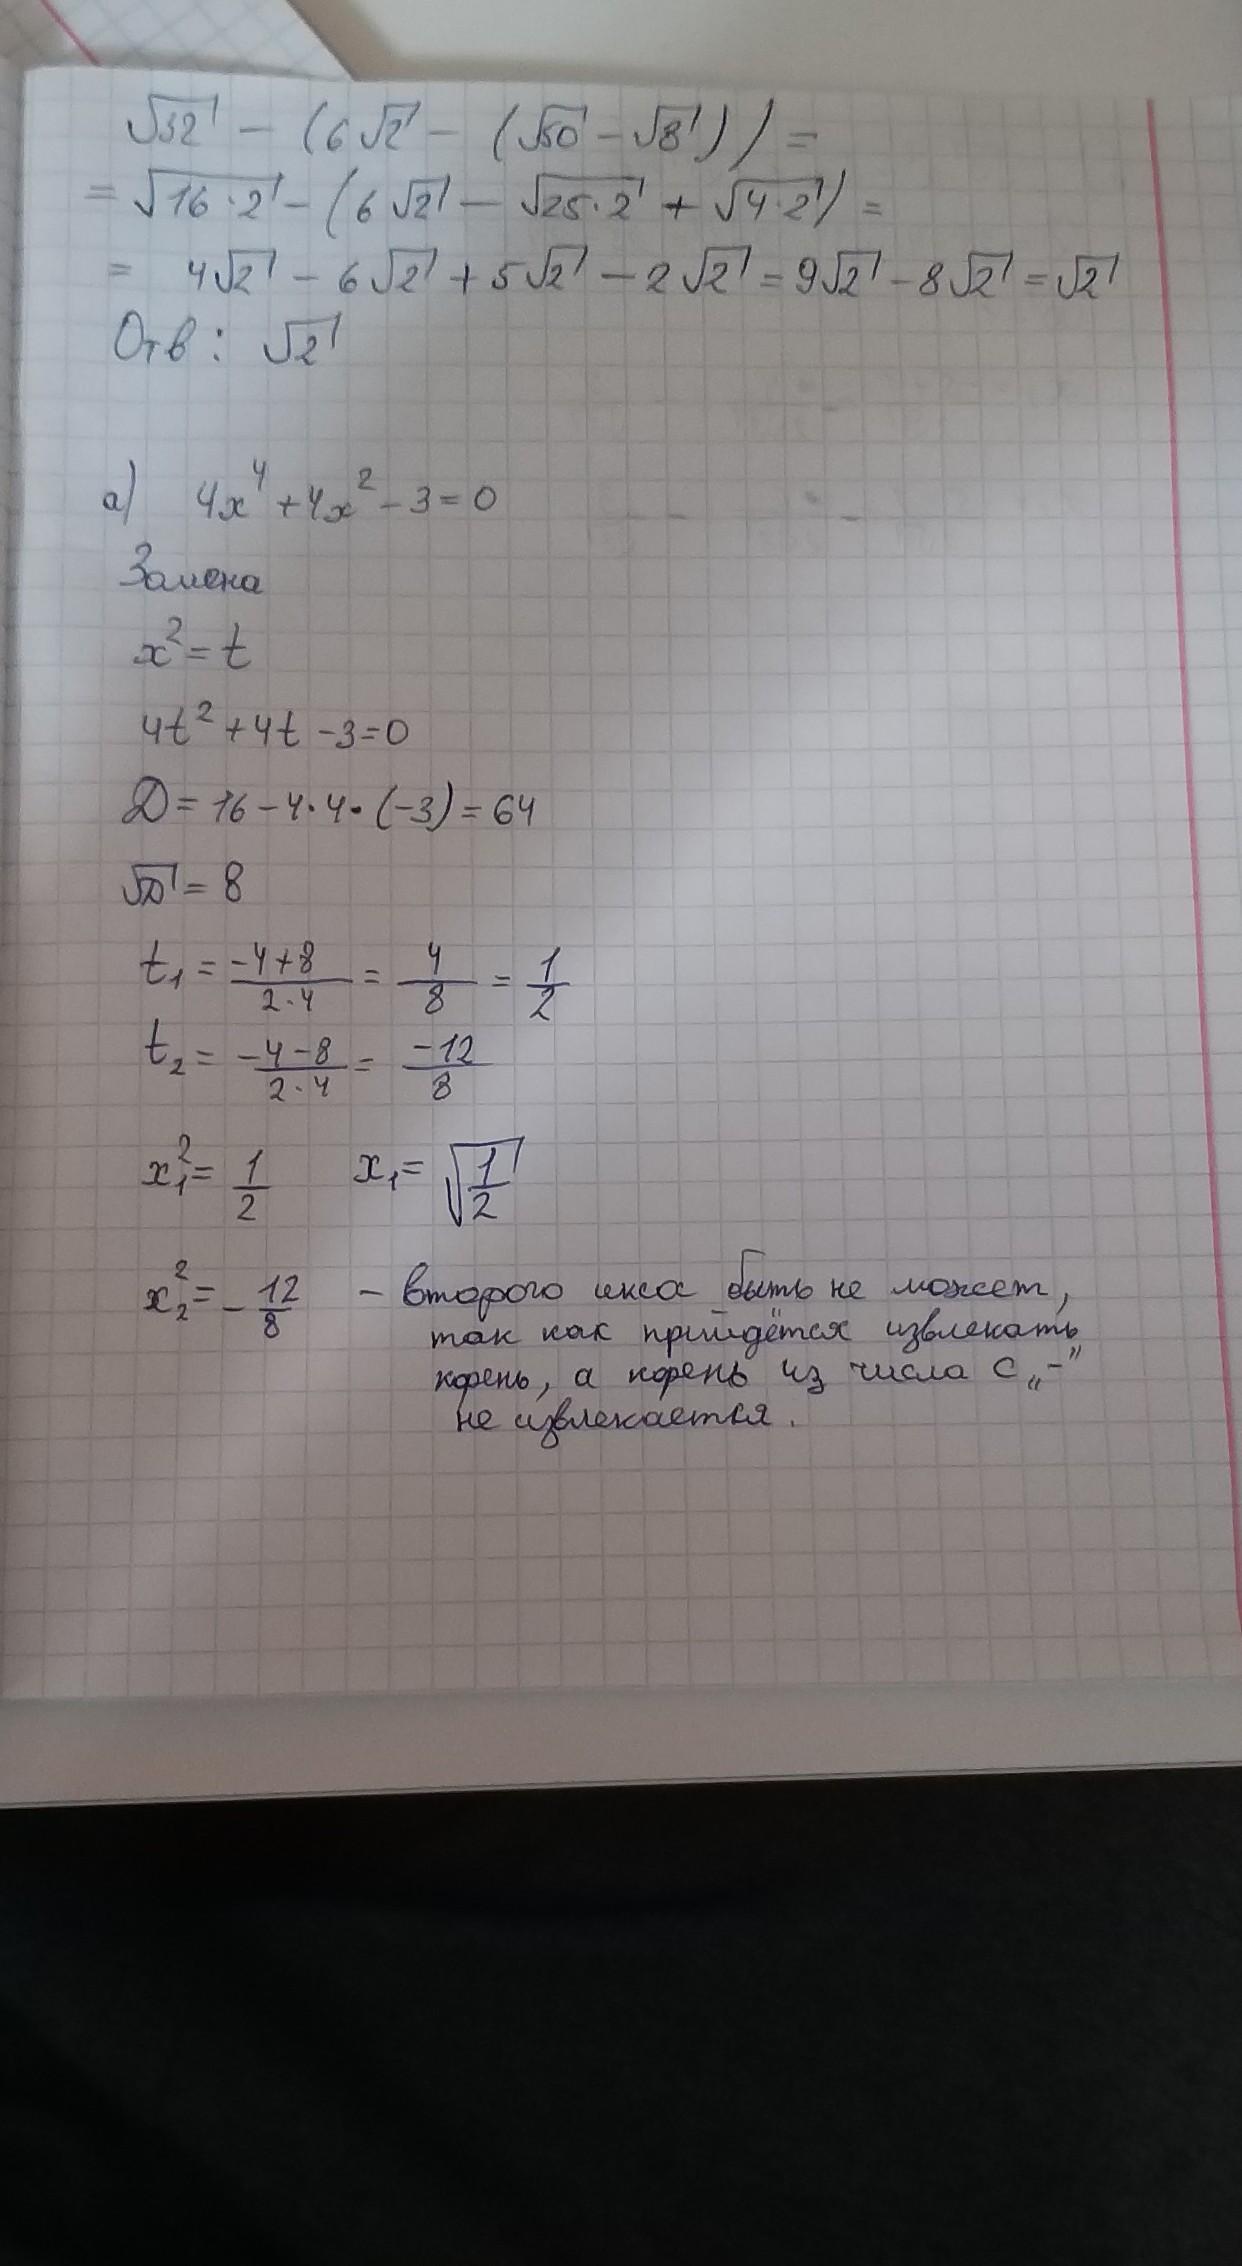 √32 - (6√2 - (√50 - √8)) =
= √16·2 - (6√2 - √25·2 + √4·2) =
= 4√2 - 6√2 + 5√2 - 2√2 = 9√2 - 8√2 = √2
Отв: √2
а) 4x⁴ + 4x² - 3 = 0
Замена
x² = t
4t² + 4t - 3 = 0
D = 16 - 4·4·(-3) = 64
√D = 8
t₁ = (-4+8)/(2·4) = 4/8 = 1/2
t₂ = (-4-8)/(2·4) = -12/8
x₁² = 1/2 x₁ = √(1/2)
x₂² = -12/8 - второго икса быть не может,
так как прийдётся извлекать
корень, а корень из числа с „-”
не извлекается.